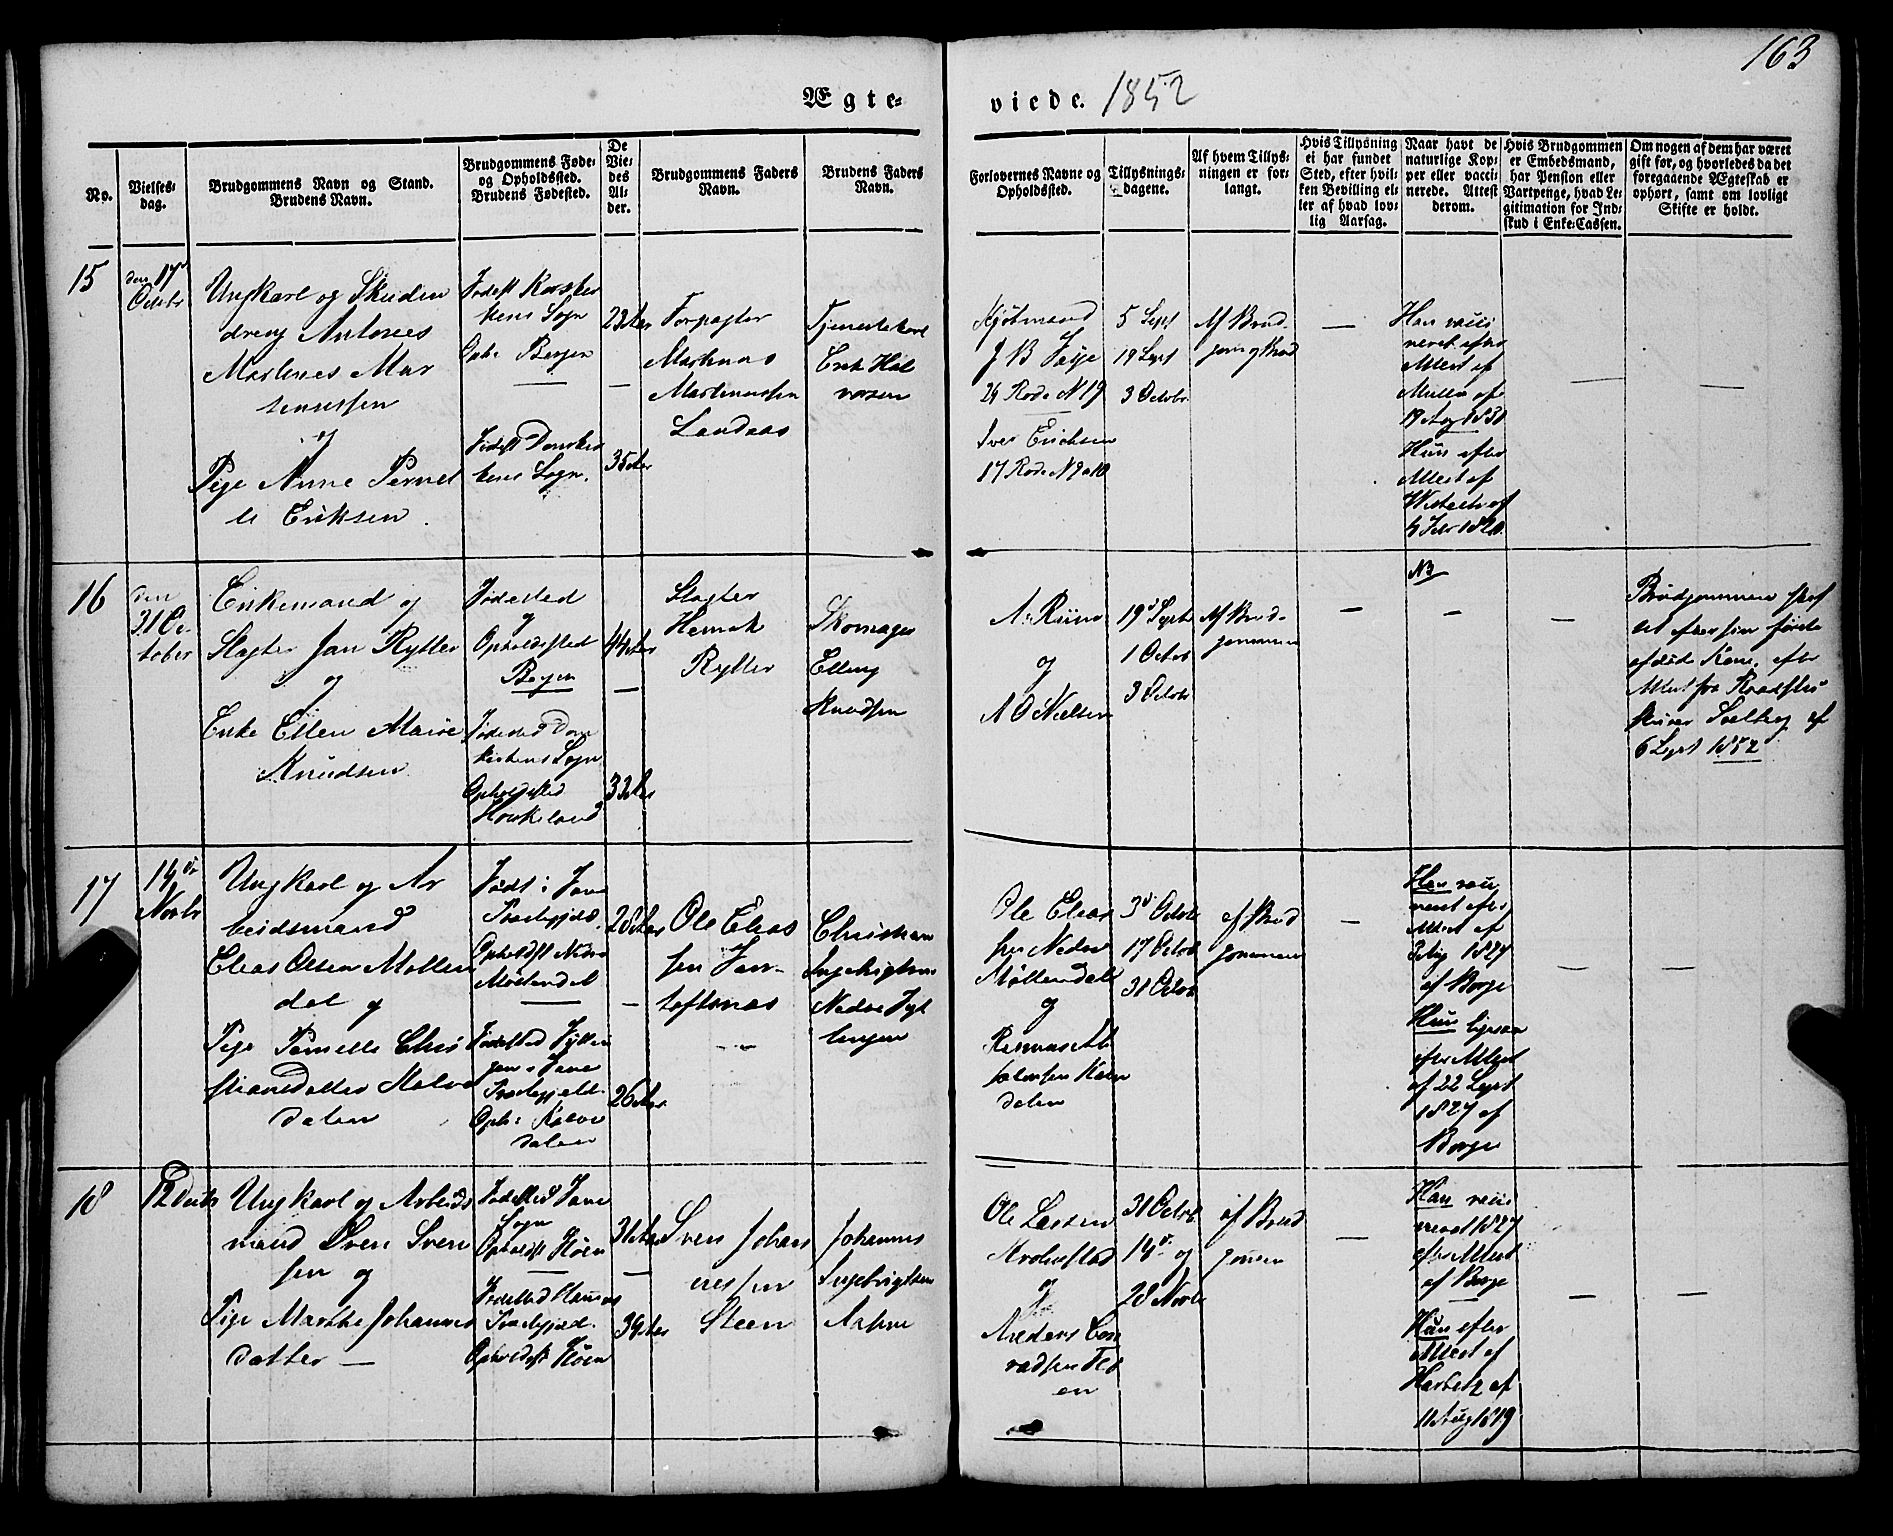 163
Ægte-
viede. 1852
No.
Vielses-
dag.
Brudgommens Navn og Stand.
Brudens Navn.
Brudgommens Føde-
og Opholdssted.
Brudens Fødested.
De
Vie-
des
Al-
der.
Brudgommens Faders
Navn.
Brudens Faders
Navn.
Forlovernes Navne og
Opholdssted.
Tillysnings-
dagene.
Af hvem Tillys-
ningen er for-
langt.
Hvis Tillysning
ei har fundet
Sted, efter hvil-
ken Bevilling el-
ler af hvad lov-
lig Aarsag.
Naar havt de
naturlige Kop-
per eller vacci-
nerede. Attest
derom.
Hvis Brudgommen
er Embedsmand,
har Pension eller
Vartpenge, hvad Le-
gitimation for Ind-
skud i Enke-Cassen.
Om nogen af dem har været
gift før, og hvorledes da det
foregaaende Ægteskab er
ophørt, samt om lovligt
Skifte er holdt.
15
den 17de
Octobr
Ungkarl og Skuden
dreng Antonies
Martenes Mar
tenussen
og
Pige Anne Pernel
le Eriksen
Fødest Korskir
kens Sogn
Oph: Bergen
Fødest Domkir
kens Sogn.
23 Aar
35 Aar
Forpagter
Martenas
Martenussen
Landaas
Tjenestekarl
Erik Hal
vorsen
Kjøbmand
J B Faye
24 Rode N 19
Iver Erichsen
17 Rode N 9 a 10
5 Sept
19 Sept
3 Octobr
Af Brud-
gom og Brud
—
Han vacci
neret efter
Attest af
Müller af
19 Aug 1831
Hun efter
Attest af
—
—
16
den
31 Oc-
tober
Enkemand og
Slagter Jan Rytter
og
Enke Ellen Marie
Knudsen
Fødested
og
Opholdsted
Bergen
Fødested Dom
kirkens Sogn
Opholdsted
Haukeland
44 Aar
33 Aar
Slagter
Henrik
Rytter
Skomager
Elling
Knudsen
og
A O Nielsen
19de Septr
1 Octob
3 Octobr
Af Brud-
gommen
—
NB
—
—
Brudgommen skif
tet efter sin første
afdøde Kone, efter
Attest fra Raadstu
skriver Solberg af
6 Sept 1852
17
14de
Novbr
Ungkarl og Ar
beidsmand
Elias Olsen Møllen
dal og
Pige Pernille Chri
stiansdatter Kalve
dalen
Født i Fane
Præstegjeld.
Opholdst Nedre
Møllendal
Fødested Fyllin
gen i Fane
Præstegjeld
Oph: Kalve
dalen
28 Aar
—
26 Aar
Ole Elias
sen Fan-
toftsnæs
Christian
Ingebrigtsen
Nedre Fyl
lingen
Ole Elias
sen Nedre
Møllendal
og
Rasmus
dalen
3de Octob
17 Octob
31 Octob
af Brud
gommen
—
Han vacci
neret efter
Attest af
1827
af Borge
Hun ligesaa
efter Attest
af 22 Sept
1827 af
Borge
—
—
18
12 Decbr
Ungkarl og Arbeids
mand Sven Sven
sen og
Pige Marthe Johannes
datter —
Fødested Fane
Sogn
Opholdst Høien
Fødested Hammer
Præstegjeld.
Opholdst Høien
31 Aar
—
39 Aar
Sven Johan
nessen
Steen
Johannes
Ingebrigtsen
Ole Larsen
og
Anders Con
radsen
31 Octob
14de og
28 Novbr
af Brud
gommen
—
Han vacci
neret 1827
efter Attest
af Borge
Hun efter
Attest af
Harbetz af
11 Aug 1819
—
—